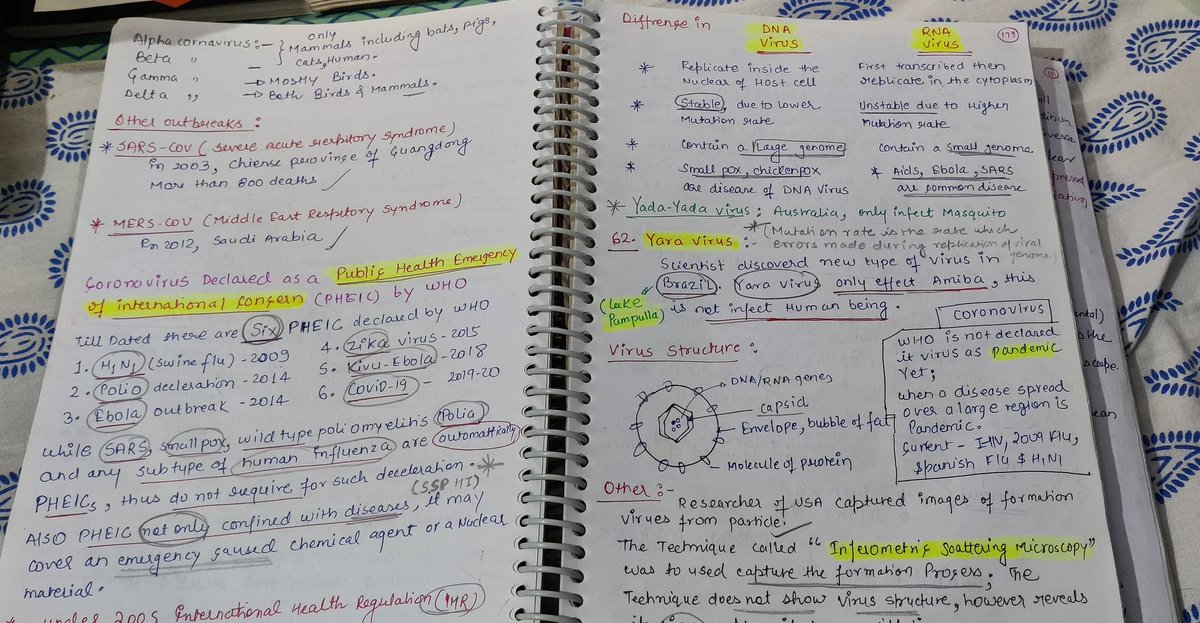 only
Alpha cornavirus:- Mammals including bats, pigs,
Beta " - cats, Human.
Gamma " → Mostly Birds.
Delta " → Both Birds & Mammals.
Other outbreaks:
* SARS-COV (Severe acute respitory syndrome)
in 2003, Chiense province of Guangdong
More than 800 deaths
* MERS-COV (Middle East Respitory Syndrome)
En 2012, Saudi Arabia
Coronavirus Declared as a Public Health Emegency
of international Concern (PHEIC) by WHO
Till Dated there are Six PHEIC declared by WHO
1. H1N1 (swine flu) - 2009
2. Polio decleration - 2014
3. Ebola outbreak - 2014
4. Zika virus - 2015
5. Kivu-Ebola - 2018
6. Covid-19 - 2019-20
while SARS, small pox, wild type poliomyelitis (Polia)
and any subtype of human influenza are automattically
PHEICs, thus do not require for such deceleration. *
(SSP HI)
Also PHEIC not only confined with diseases, it may
cover an emergency caused chemical agent or a Nuclear
material.
* under 2005 International Health Regulation (IHR)
Diffrence in DNA Virus RNA Virus 173
* Replicate inside the First transcribed then
Nuclear of Host cell replicate in the cytoplasm
* Stable, due to lower Unstable due to Higher
Mutation rate mutation rate
* contain a large genome contain a small genome
* Small pox, chickenpox * Aids, Ebola, SARS
are disease of DNA Virus are common disease
* Yada-Yada virus: Australia, only infect Masquito
* (Mutation rate is the rate which
62. Yara Virus :- errors made during replication of viral
genome)
Scientist discoverd new type of virus in
Brazil. Yara virus only effect Amiba, this
(Lake Pampulla) is not infect Human being.
Virus Structure:
DNA/RNA genes
capsid
Envelope, bubble of fat
Molecule of protein
coronavirus
WHO is not declared
it virus as pandemic
Yet;
when a disease spread
over a large region is
Pandemic.
Current - IHV, 2009 Flu,
Spanish Flu $ H1N1
Other :-
Researcher of USA captured images of formation
virues from particle.
The Technique called "Inferometric Scattering Microscopy"
was to used capture the formation Proces; The
Technique does not show Virus structure, however reveals